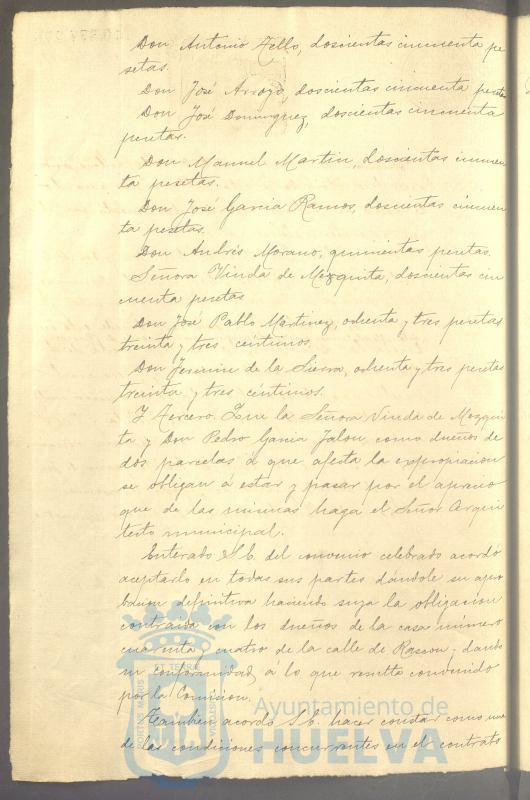 Don Antonio Tello, doscientas cincuenta pe
setas.
Don José Arroyo, doscientas cincuenta pesetas
Don José Dominguez, doscientas cincuenta
pesetas.
Don Manuel Martin, doscientas cincuen
ta pesetas.
Don José Garcia Ramos, doscientas cincuen
ta pesetas.
Don Andrés Morano, quinientas pesetas.
Señora Viuda de Mezquita, doscientas cin
cuenta pesetas
Don José Pablo Martinez, ochenta y tres pesetas
treinta y tres céntimos.
Don de la Sierra, ochenta y tres pesetas
treinta y tres céntimos.
Y Tercero. Que la Señora Viuda de Mezqui
ta y Don Pedro Garcia Jalon como dueños de
dos parcelas á que afecta la expropiacion
se obligan á estar y pasar por el aprecio
que de las mismas haga el Señor Arqui
tecto municipal.
Enterado S.E. del convenio celebrado acordó
aceptarlo en todas sus partes dándole su apro
bacion definitiva haciendo suya la obligacion
contraida con los dueños de la casa número
cuarenta y cuatro de la calle de Rascon y dando
su conformidad á lo que resulta convenido
por la Comision.
Tambien acordó S.E. hacer constar como una
de las condiciones concurrentes en el contrato
PORTUS MARIS
ET TERRÆ
CUSTODIA
Ayuntamiento de
HUELVA